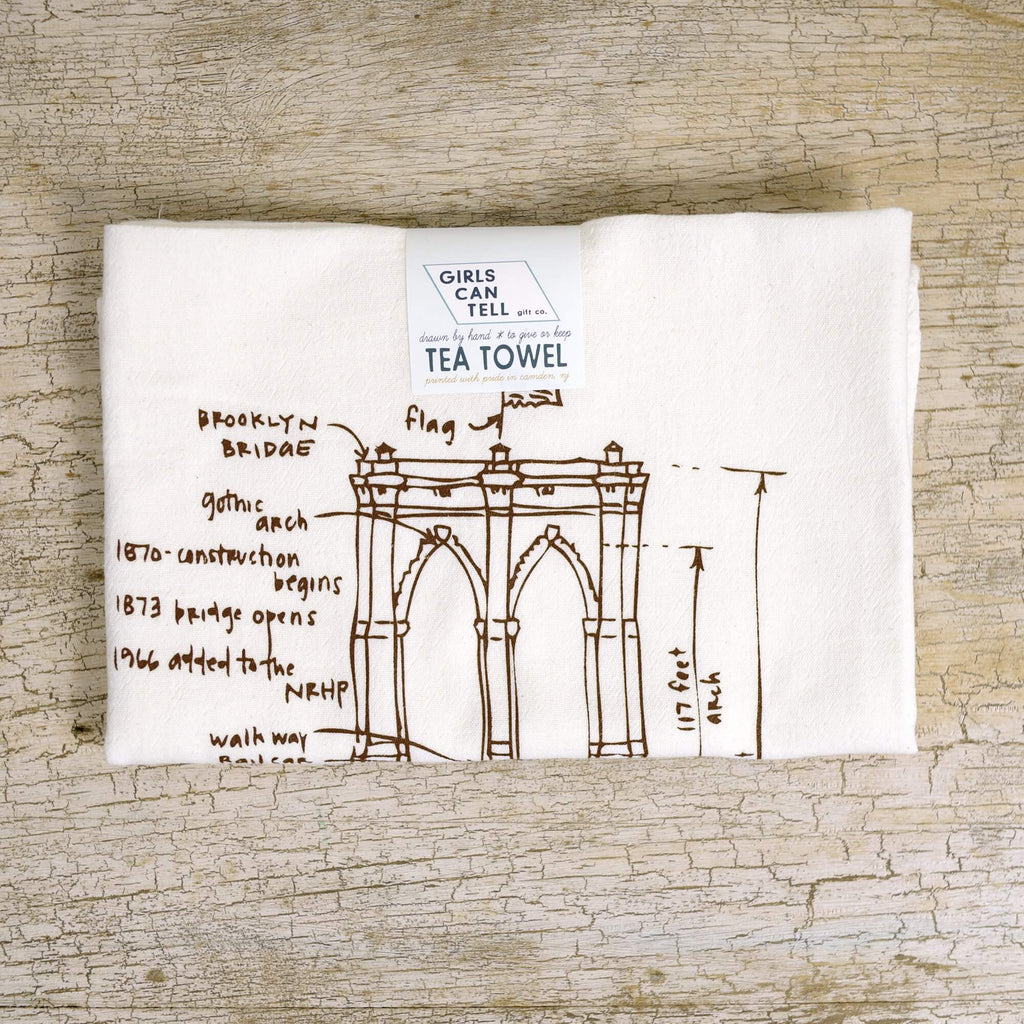 GIRLS
CAN
TELL gift co.
drawn by hand * to give or keep
TEA TOWEL
printed with pride in camden, nj
BROOKLYN
BRIDGE
flag
gothic
arch
1870-construction
begins
1873 bridge opens
1966 added to the
NRHP
walkway
117 feet
arch